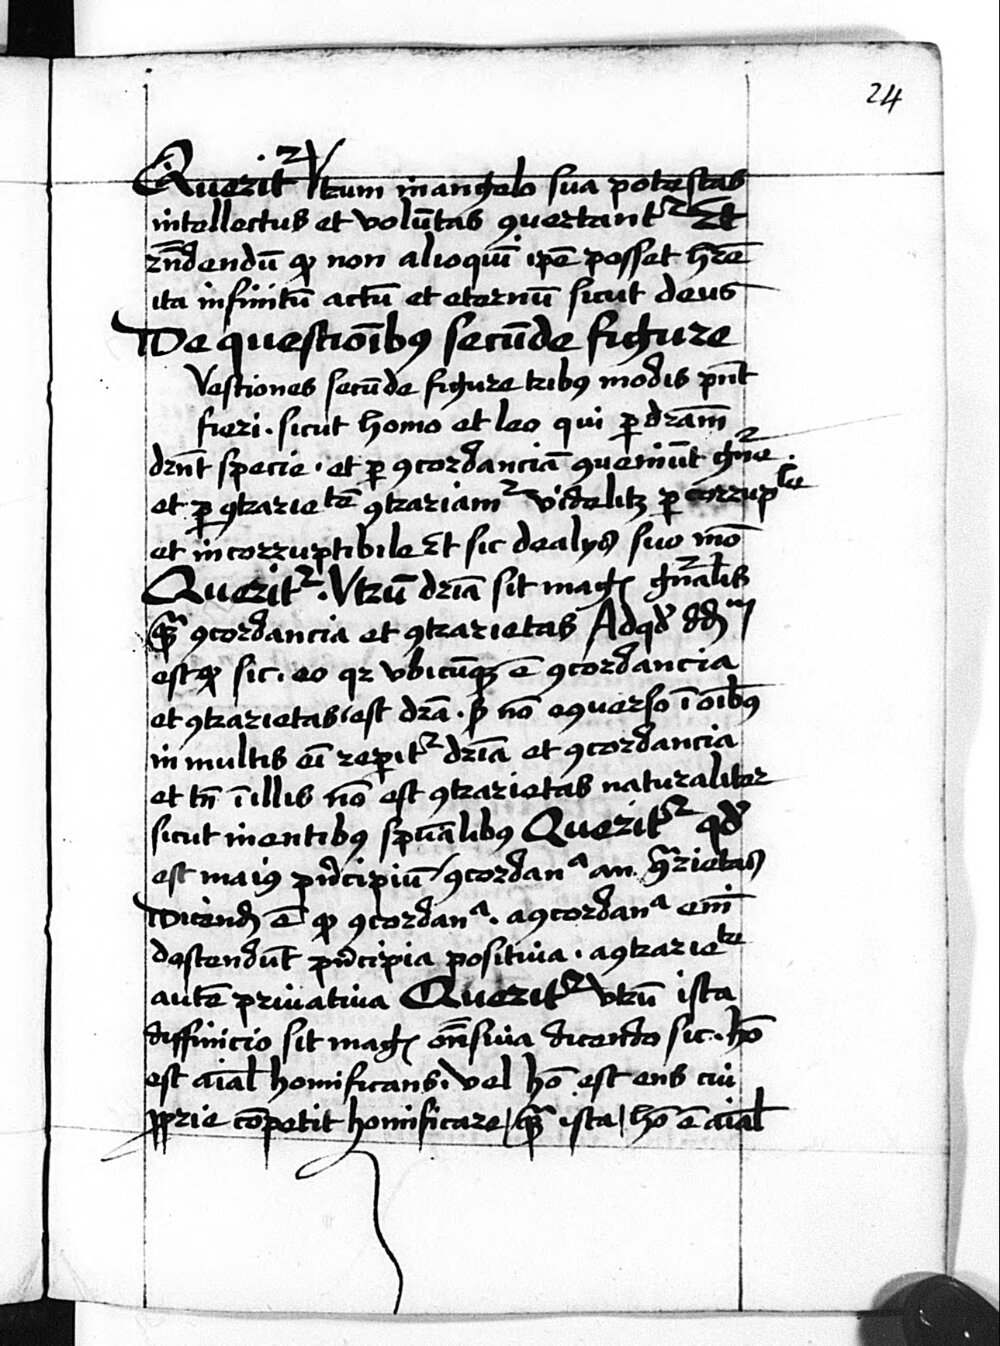 24
Querit² Vtrum in angelo sua potestas
intellectus et volūtas ꝯuertant² Et
rn̄dendū ꝙ non alioquī ip̄e posset hr̄e
ita infinitū actū et eternū sicut deus
De questiōibꝯ secūde figure
Vestiones secūde figure tribꝯ modis pn̄t
fieri . sicut homo et leo qui ꝑ dr̄am̄
drn̄t specie . et ꝑ ꝯcordanciā ꝯueniūt gn̄e .
et ꝑ ꝯtrarietē ꝯtrariam² videlitꝫ ꝑ corrupᵇˡᵉ
et incorruptibile Et sic de alys suo mō
Querit² . Vtrū dr̄ia sit magꝭ gn̄alis
ꝙᷓ ꝯcordancia et ꝯtrarietas Ad qđ dd̄m
est ꝙ sic . eo qꝛ vbicūqꝫ ē ꝯcordancia
et ꝯtrarietas est dr̄a . s̄ nō eꝯuerso ī oībꝯ
in multis eī reperit² dr̄ia et ꝯcordancia
et tn̄ ī illis nō est ꝯtrarietas naturaliter
sicut in entibꝯ spūalibꝯ Querit² qđ
est maiꝯ pͥncipiū / ꝯcordanᵃ an ꝯᵃrietas
Dicendꝭ ē ꝙ ꝯcordanᵃ . a ꝯcordanᵃ enī
descendūt pͥncipia positiua . a ꝯtrarieᵗᵉ
autē priuatiua Querit² vtrū ista
diffinicio sit magꝭ on̄siua dicendo sic . hō
est aīal homificans . vel hō est ens cui
ꝓprie cōpetit homificare / ꝙᷓ ista / hō ē aīal